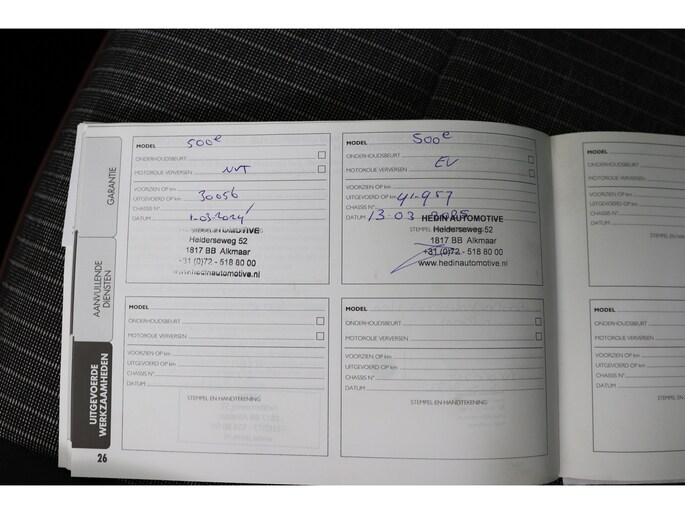 GARANTIE
AANVULLENDE
DIENSTEN
UITGEVOERDE
WERKZAAMHEDEN
26
MODEL 500e
ONDERHOUDSBEURT
MOTOROLIE VERVERSEN NVT
VOORZIEN OP km
UITGEVOERD OP km 30056
CHASSIS N°
DATUM 1-03-2024
Helderseweg 52
1817 BB Alkmaar
+31 (0)72 - 518 80 00
www.hedinautomotive.nl
MODEL 500e
ONDERHOUDSBEURT
MOTOROLIE VERVERSEN EV
VOORZIEN OP km
UITGEVOERD OP km 41-957
CHASSIS N°
DATUM 13-03-2025
HEDIN AUTOMOTIVE
Helderseweg 52
1817 BB Alkmaar
+31 (0)72 - 518 80 00
www.hedinautomotive.nl
MODEL
ONDERHOUDSBEURT
MOTOROLIE VERVERSEN
VOORZIEN OP km
UITGEVOERD OP km
CHASSIS N°
DATUM
STEMPEL EN HANDTEKENING
MODEL
ONDERHOUDSBEURT
MOTOROLIE VERVERSEN
VOORZIEN OP km
UITGEVOERD OP km
CHASSIS N°
DATUM
STEMPEL EN HANDTEKENING
MODEL
ONDERHOUDSBEURT
MOTOROLIE VERVE
VOORZIEN OP km
UITGEVOERD OP km
CHASSIS N°
DATUM
MODEL
ONDERHOUDSBEURT
MOTOROLIE VERVERS
VOORZIEN OP km
UITGEVOERD OP km
CHASSIS N°
DATUM
STEMPEL EN